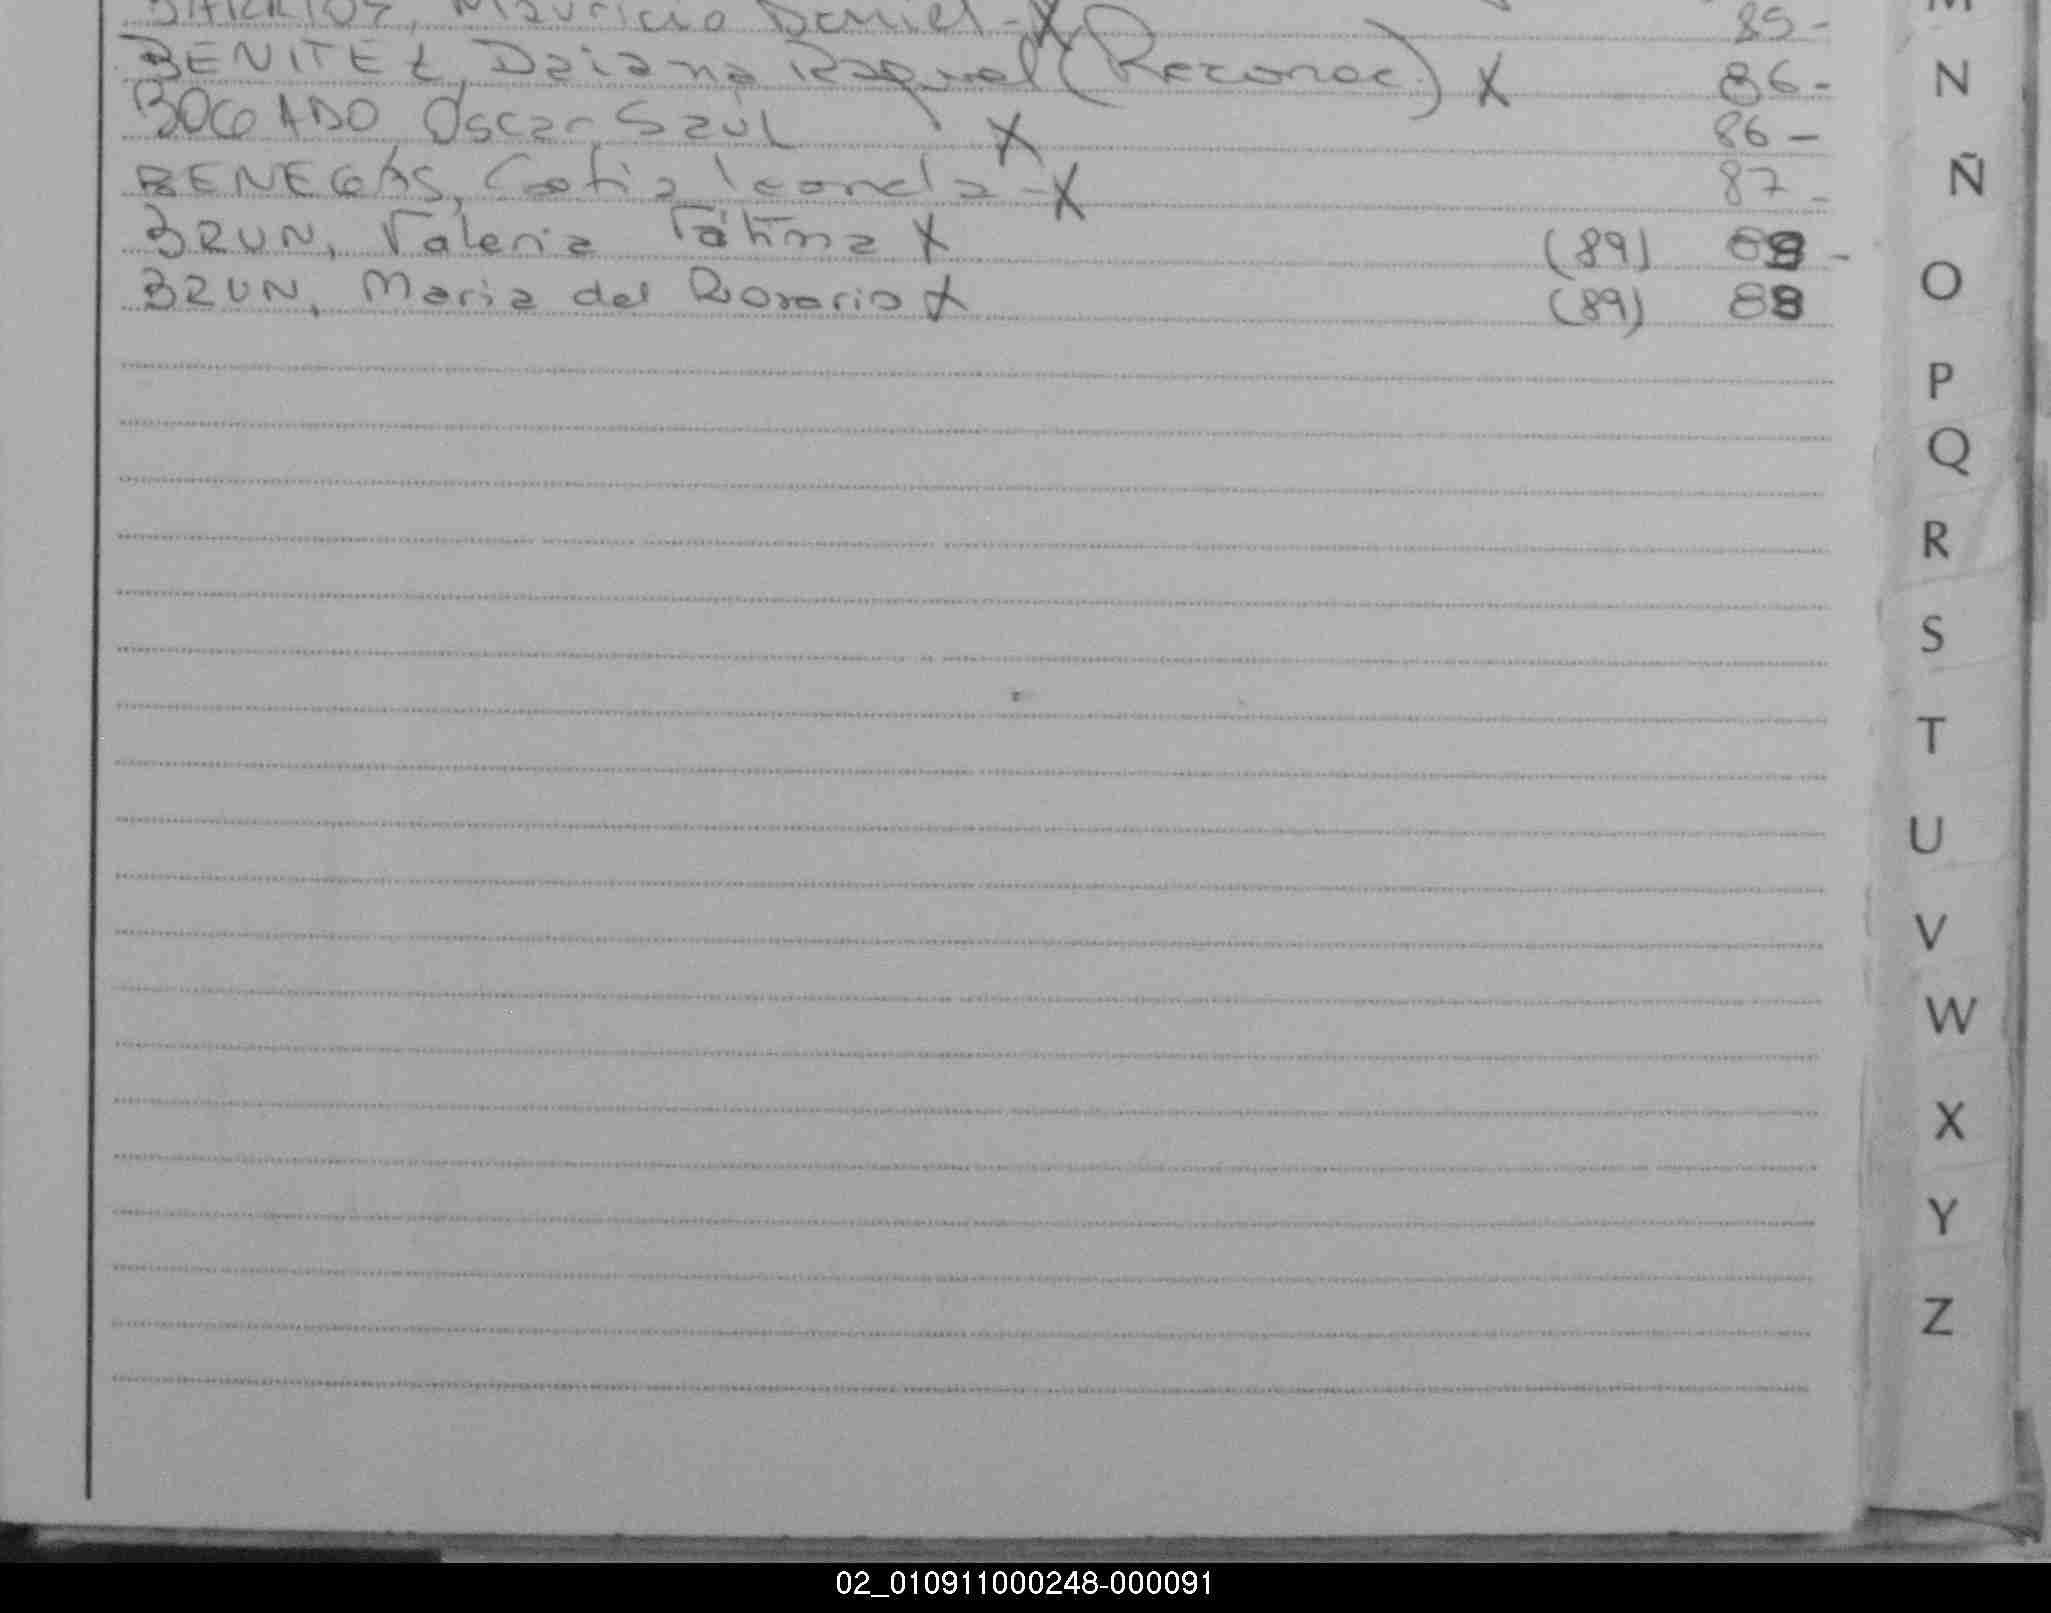 BARRIOS, Mauricio Daniel - X 85 -
BENITEZ, Daiana Raquel (Reconoc.) X 86 -
BOGADO Óscar Saúl X 86 -
BENEGAS, X 87 -
BRUN, Valeria Fátima X (89) 88 -
BRUN, María del Rosario X (89) 88
M
N
Ñ
O
P
Q
R
S
T
U
V
W
X
Y
Z
02_010911000248-000091